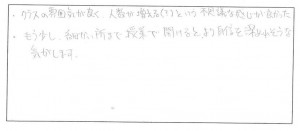 ・クラスの雰囲気が良く、人数が増える(?)という不思議な感じが良かった
・もう少し、細かい所まで授業で聞けるとより理解を深められそうな
気がします。